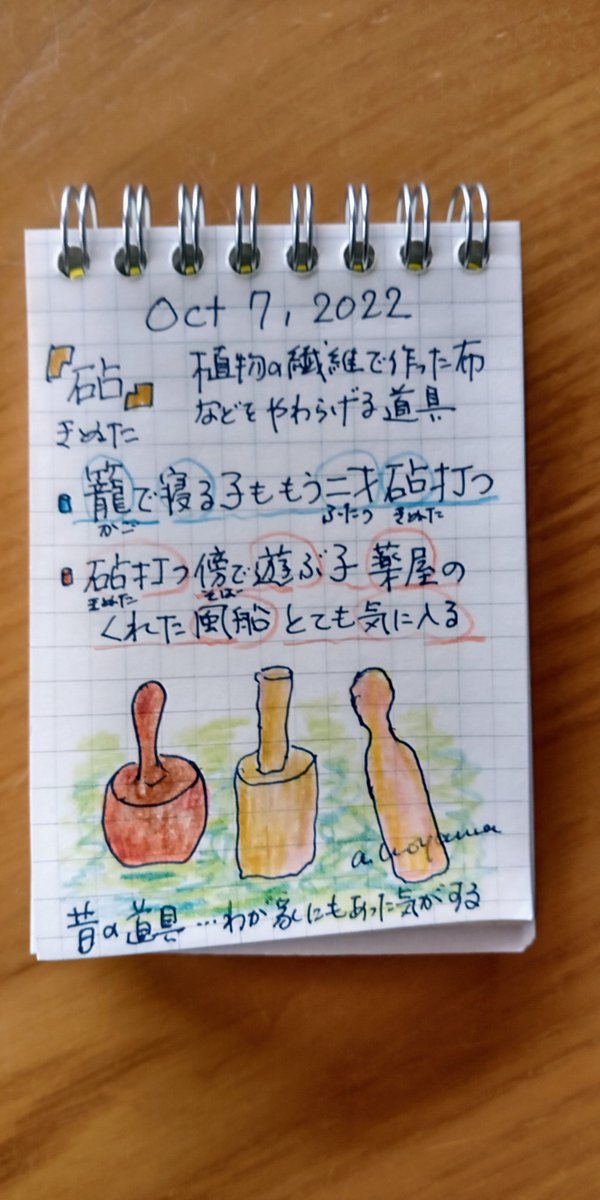 Oct 7, 2022
『砧』 植物の繊維で作った布
きぬた などをやわらげる道具
籠で寝る子ももう二才砧打つ
かご ふたつ きぬた
砧打つ傍で遊ぶ子薬屋の
きぬた そば
くれた風船とても気に入る
昔の道具…わが家にもあった気がする